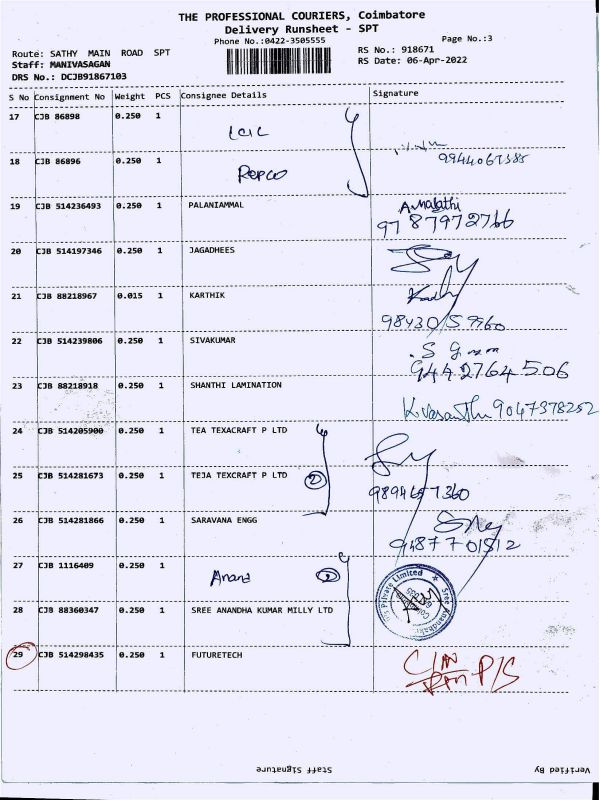 THE PROFESSIONAL COURIERS, Coimbatore
Delivery Runsheet - SPT
Phone No.:0422-3505555
Page No.:3
Route: SATHY MAIN ROAD SPT
RS No.: 918671
Staff: MANIVASAGAN
RS Date: 06-Apr-2022
DRS No.: DCJB91867103
S No Consignment No Weight PCS Consignee Details Signature
17 CJB 86898 0.250 1
18 CJB 86896 0.250 1 Repco 9944067385
19 CJB 514236493 0.250 1 PALANIAMMAL A.Malathi
9787972766
20 CJB 514197346 0.250 1 JAGADHEES
21 CJB 88218967 0.015 1 KARTHIK
9843059960
22 CJB 514239806 0.250 1 SIVAKUMAR
9442764506
23 CJB 88218918 0.250 1 SHANTHI LAMINATION
K.Vasanthi 9047378252
24 CJB 514205900 0.250 1 TEA TEXACRAFT P LTD
25 CJB 514281673 0.250 1 TEJA TEXCRAFT P LTD 2
9894657360
26 CJB 514281866 0.250 1 SARAVANA ENGG
9487701512
27 CJB 1116409 0.250 1 Anand 2
28 CJB 88360347 0.250 1 SREE ANANDHA KUMAR MILLY LTD
29 CJB 514298435 0.250 1 FUTURETECH P/S
Staff Signature
Verified By